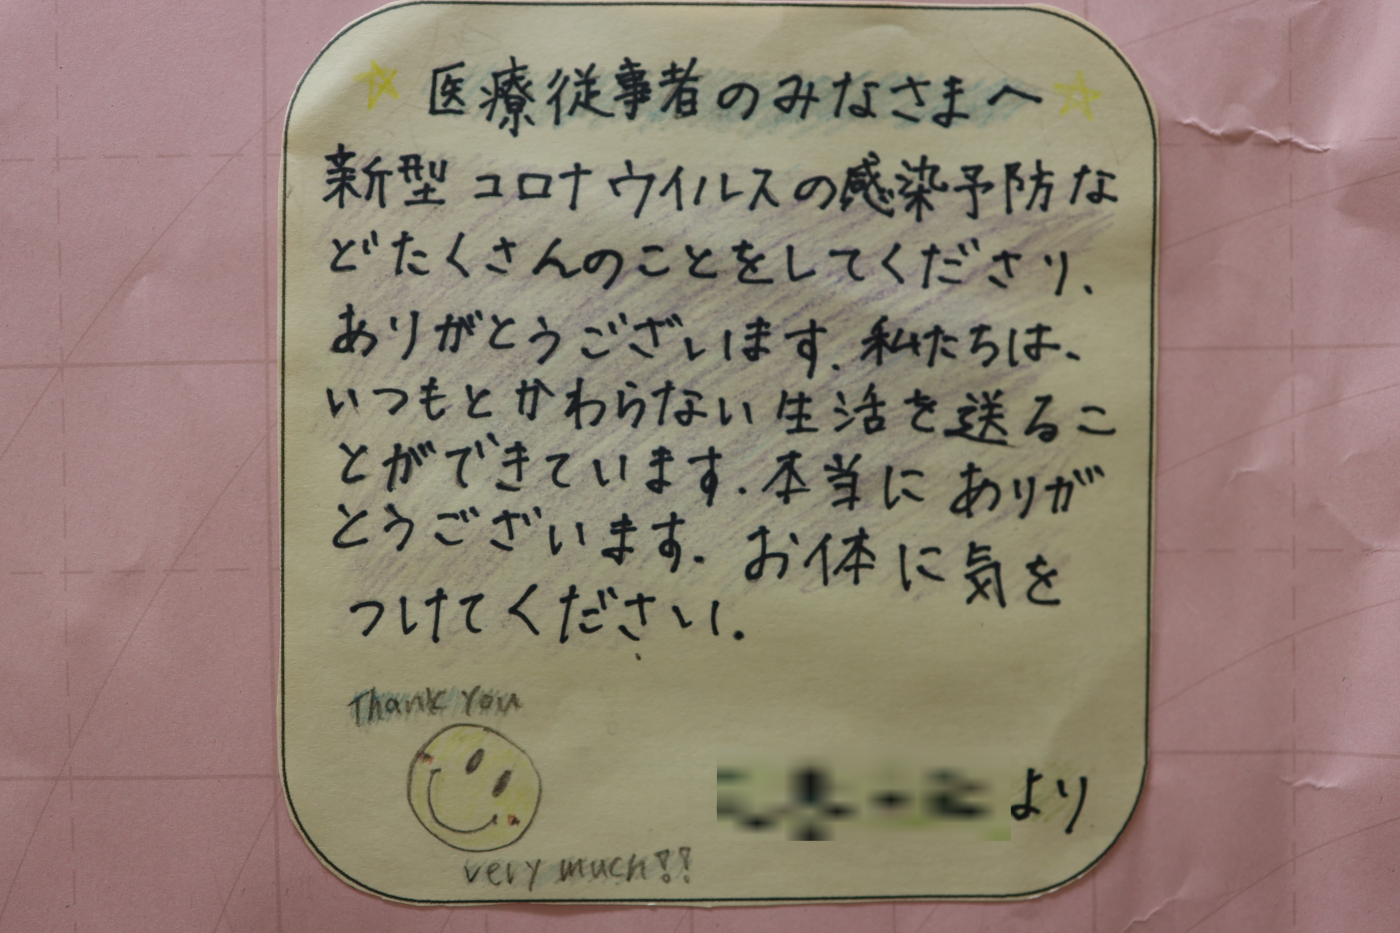 医療従事者のみなさまへ
新型コロナウイルスの感染予防な
どたくさんのことをしてくださり、
ありがとうございます。私たちは、
いつもとかわらない生活を送るこ
とができています。本当にありが
とうございます。お体に気を
つけてください。
Thank You
より
very much!!